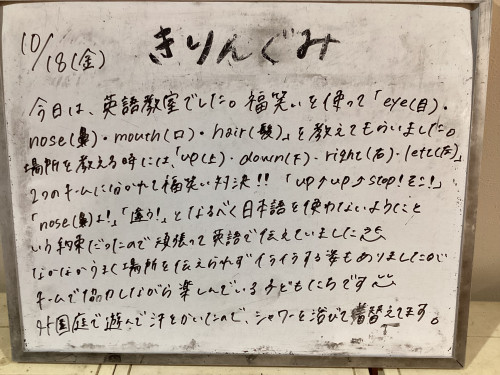 10/18(金)
きりんぐみ
今日は、英語教室でした。福笑いを使って「eye(目)・
nose(鼻)・mouth(口)・hair(髪)」を教えてもらいました。
場所を教える時には、「up(上)・down(下)・right(右)・left(左)」
2つのチームに分かれて福笑い対決!!「up↑up↑stop!そこ!」
「nose(鼻)よ!」「違う!」となるべく日本語を使わないようにと
いう約束だったので頑張って英語で伝えていました
なかなかうまく場所を伝えられずイライラする姿もありましたが
チームで協力しながら楽しんでいる子どもたちです
園庭で遊んで汗をかいたので、シャワーを浴びて着替えてます。